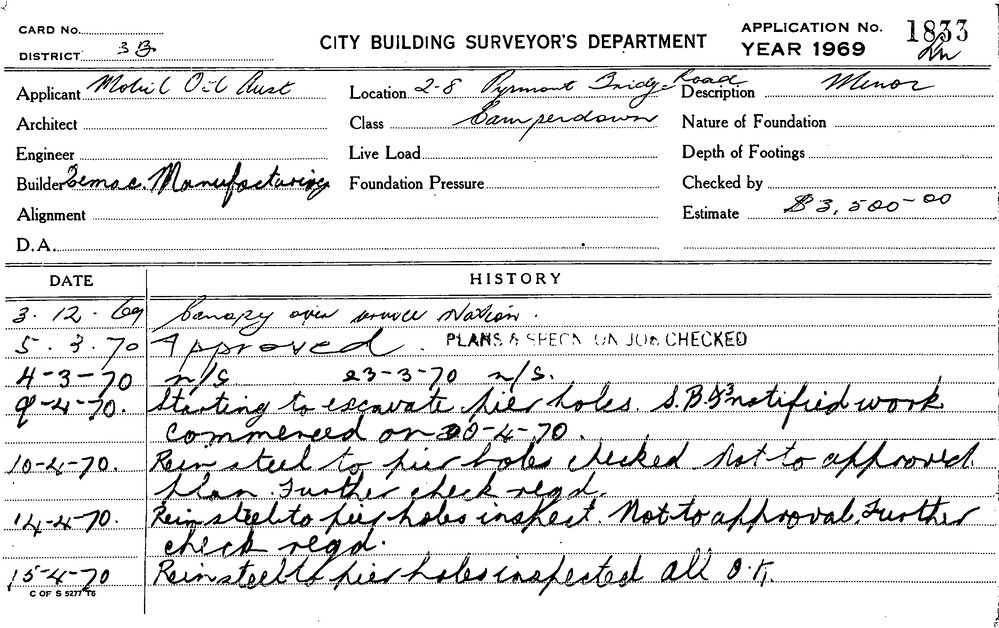 CARD No.
DISTRICT 3 B.
CITY BUILDING SURVEYOR'S DEPARTMENT
APPLICATION No. 1833
YEAR 1969
Applicant Mobil Oil Aust
Location 2-8 Pyrmont Bridge Road
Description Minor
Architect
Class Camperdown
Nature of Foundation
Engineer
Live Load
Depth of Footings
Builder Manufacturing
Foundation Pressure
Checked by
Alignment
Estimate $3,500-00
D.A.
DATE HISTORY
3.12.69 Canopy over service station.
5.3.70 Approved. PLANS & SPECN ON JOB CHECKED
4-3-70 n/s 23-3-70 n/s.
9-4-70. Starting to excavate pier holes. S.B.S notified work
commenced on -4-70.
10-4-70. Rein steel to pier holes checked Not to approved
plan. Further check reqd.
14-4-70. Rein steel to pier holes inspect. Not to approval. Further
check reqd.
15-4-70 Rein steel to pier holes inspected all O.K.
C OF S 5277 T6